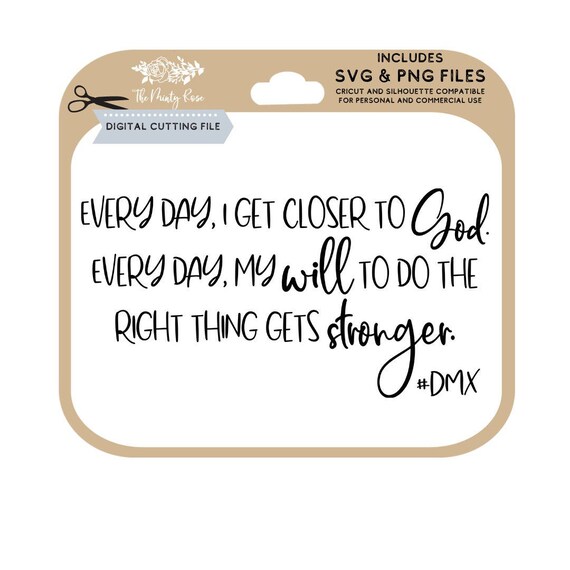 The Printy Rose
DIGITAL CUTTING FILE
INCLUDES
SVG & PNG FILES
CRICUT AND SILHOUETTE COMPATIBLE
FOR PERSONAL AND COMMERCIAL USE
EVERY DAY, I GET CLOSER TO God.
EVERY DAY, MY will TO DO THE
RIGHT THING GETS stronger.
#DMX